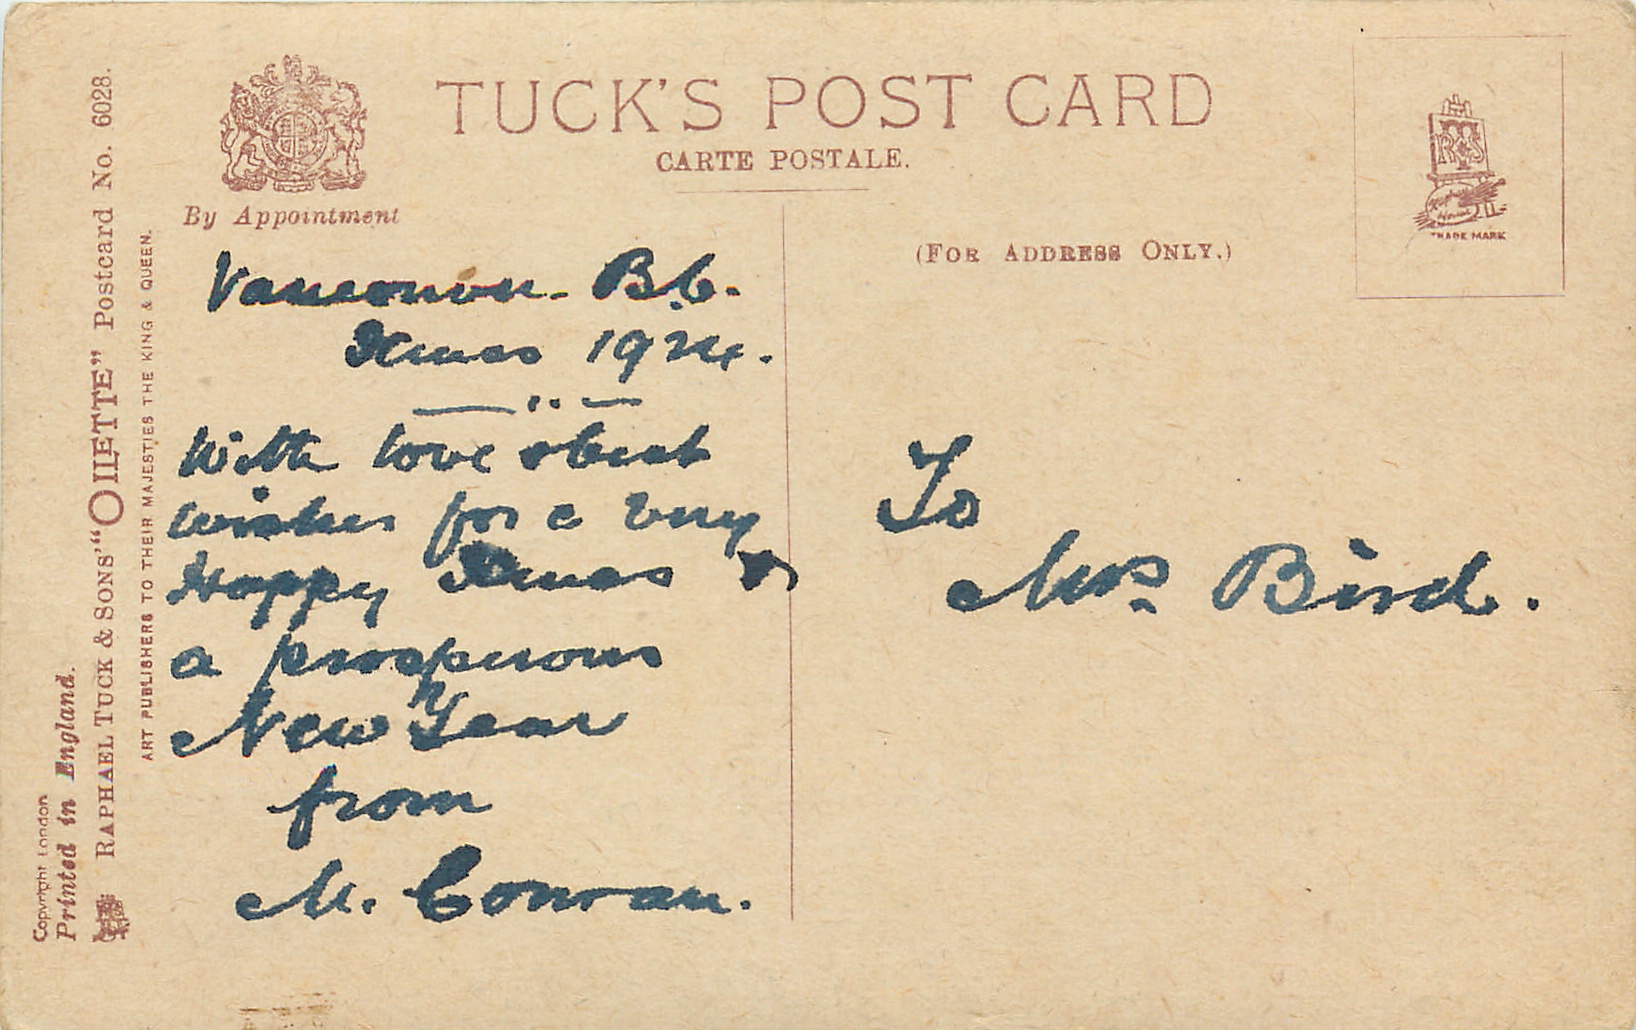 TUCK'S POST CARD
CARTE POSTALE.
By Appointment
(FOR ADDRESS ONLY.)
TRADE MARK
Copyright London
Printed in England.
RAPHAEL TUCK & SONS' "OILETTE" Postcard No. 6028.
ART PUBLISHERS TO THEIR MAJESTIES THE KING & QUEEN.
Vancouver. B.C.
Xmas 1924.
With love & best
wishes for a very
Happy Xmas &
a prosperous
New Year
from
M. Conran.
To
Mrs. Bird.